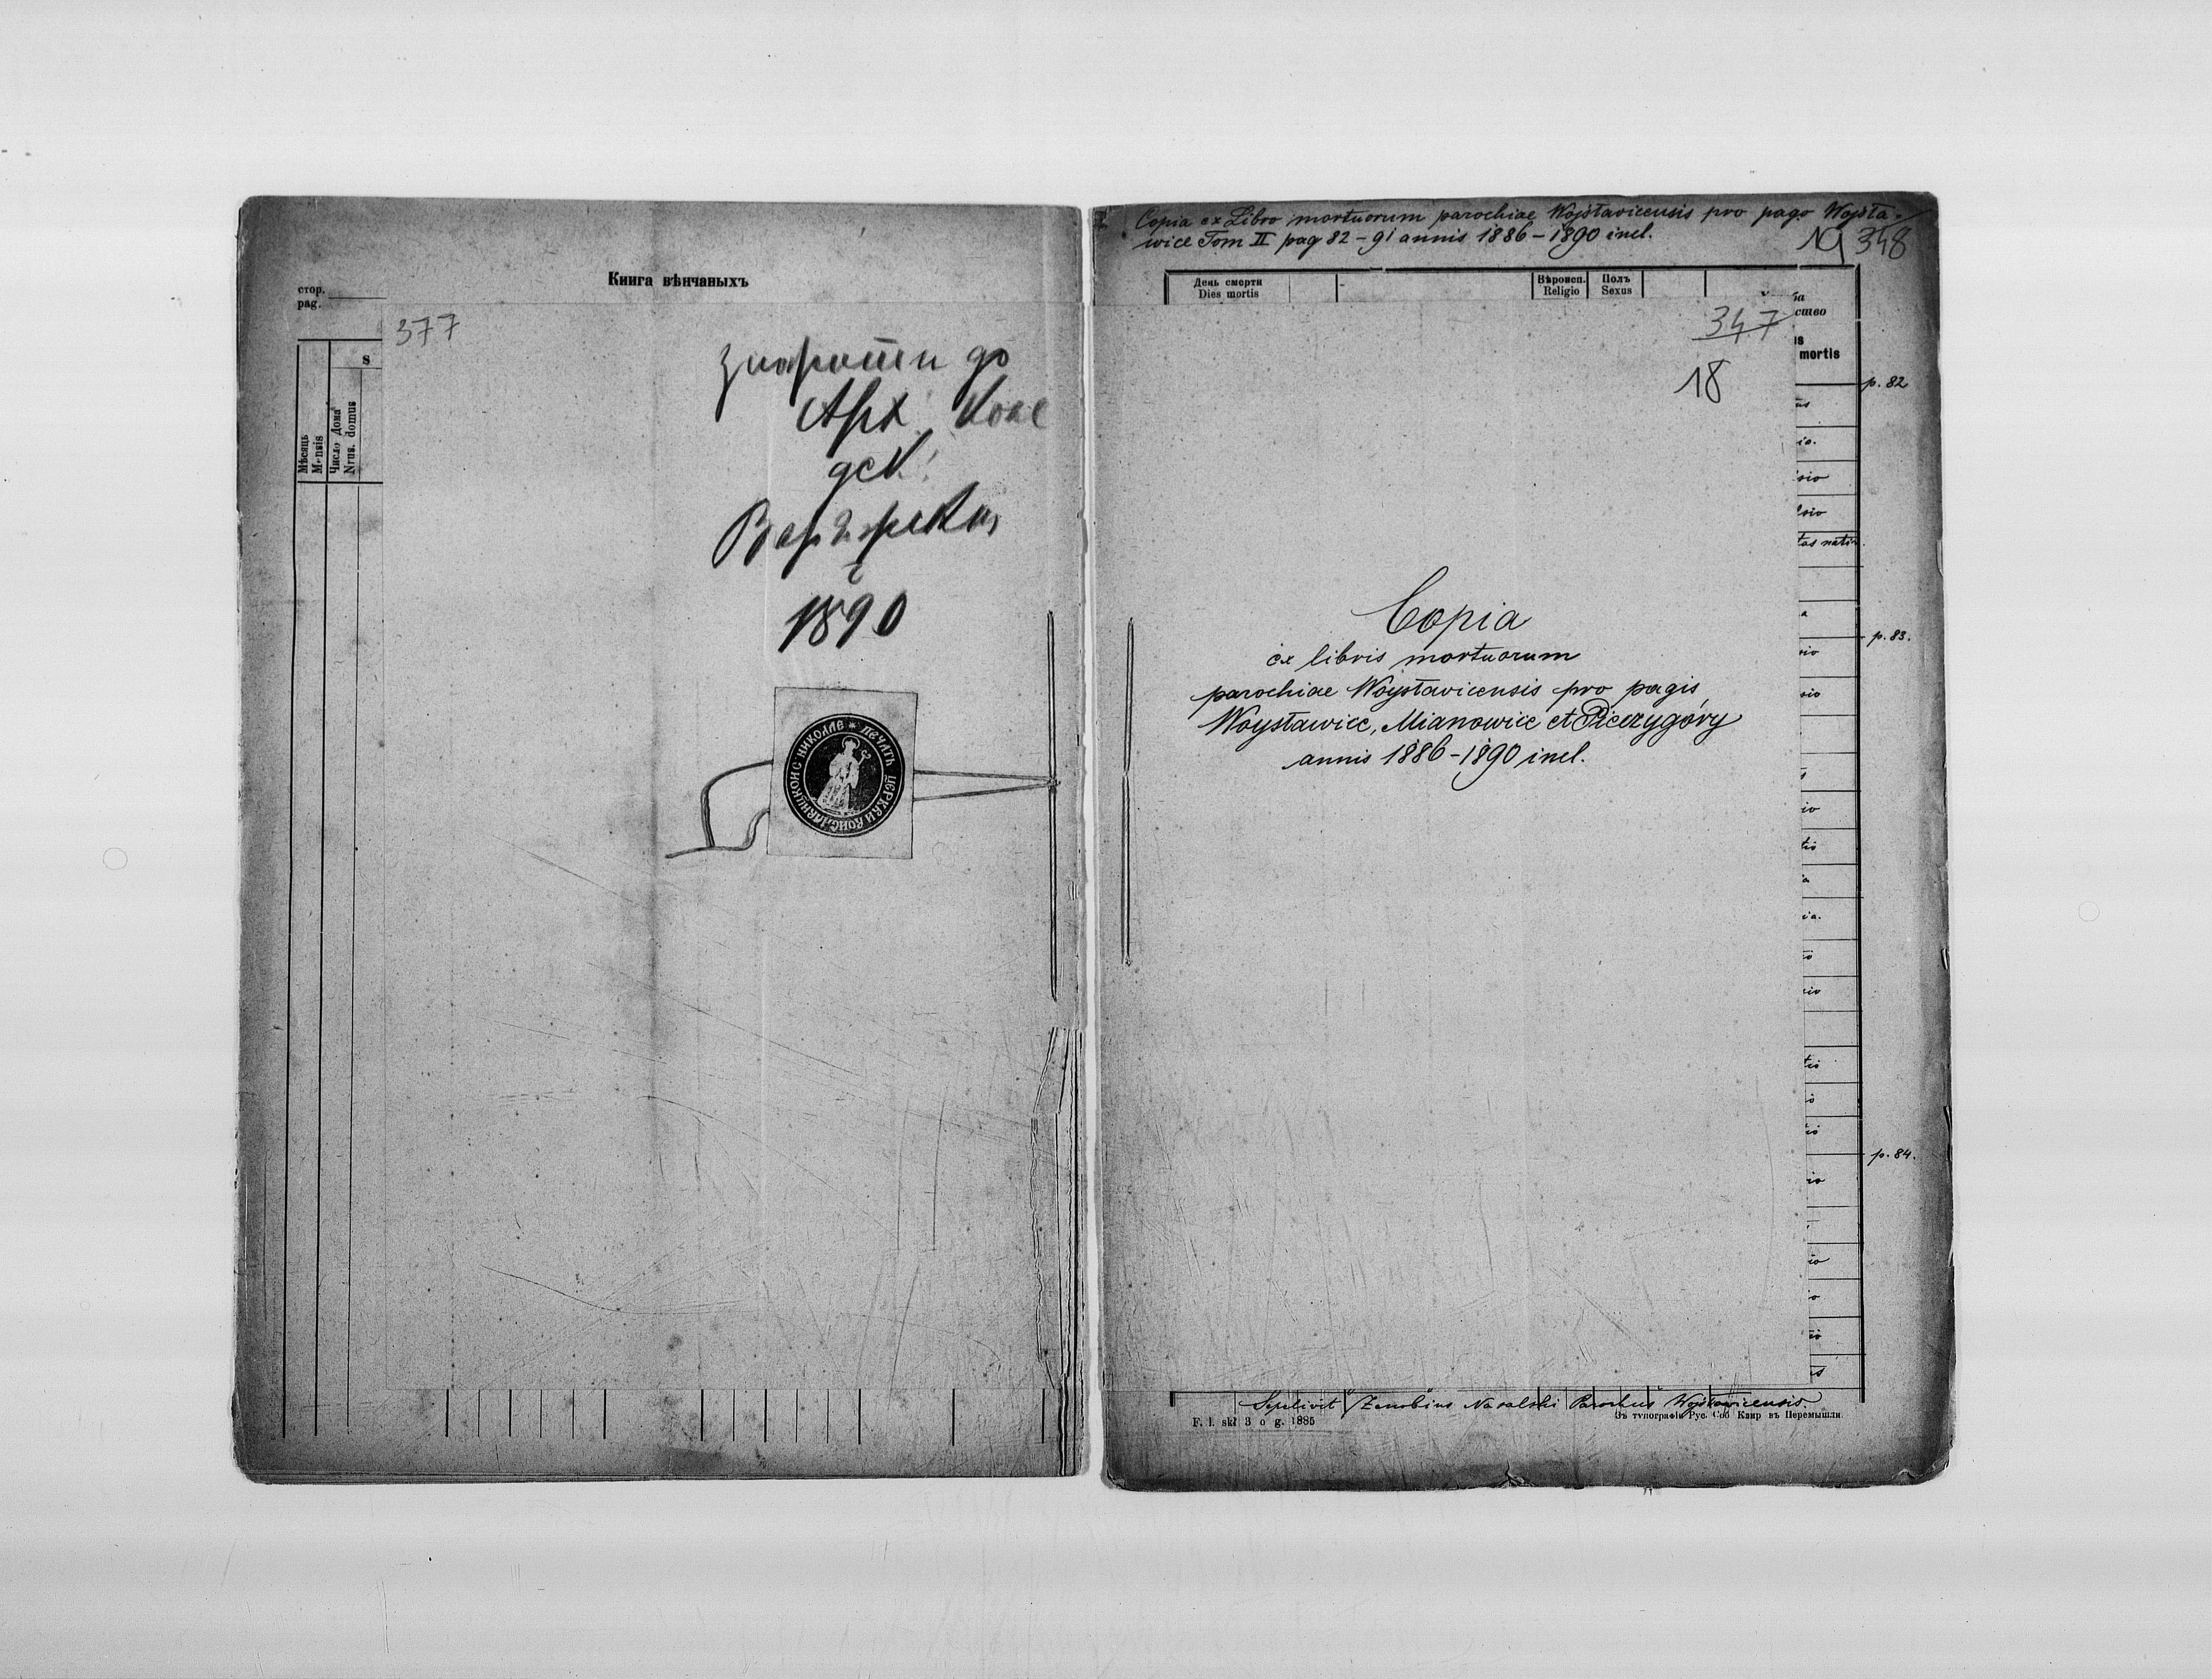 Книга вѣнчаныхъ
стор.
pag.
377
s
Мѣсяць
Mensis
Число Дома
Nrus. domus
до
Арх.
1890
ПЕЧАТЬ ЦЕРКВИ
Copia ex Libro mortuorum parochiae Wojsławicensis pro pago Wojsła-
wice Tom II pag 82-91 annis 1886-1890 incl.
19 348
День смерти
Dies mortis
Вѣроисп.
Religio
Полъ
Sexus
347
18
mortis
p. 82
p. 83.
p. 84.
Copia
ex libris mortuorum
parochiae Woysławicensis pro pagis
Woysławice, Mianowice et Pieczygóry
annis 1886-1890 incl.
Sepelivit Zenobius Nasalski Parochus Wojsławicensis
F. l. skł 3 o g. 1885
Въ типографіи Рус. Соб Капр въ Перемышли.